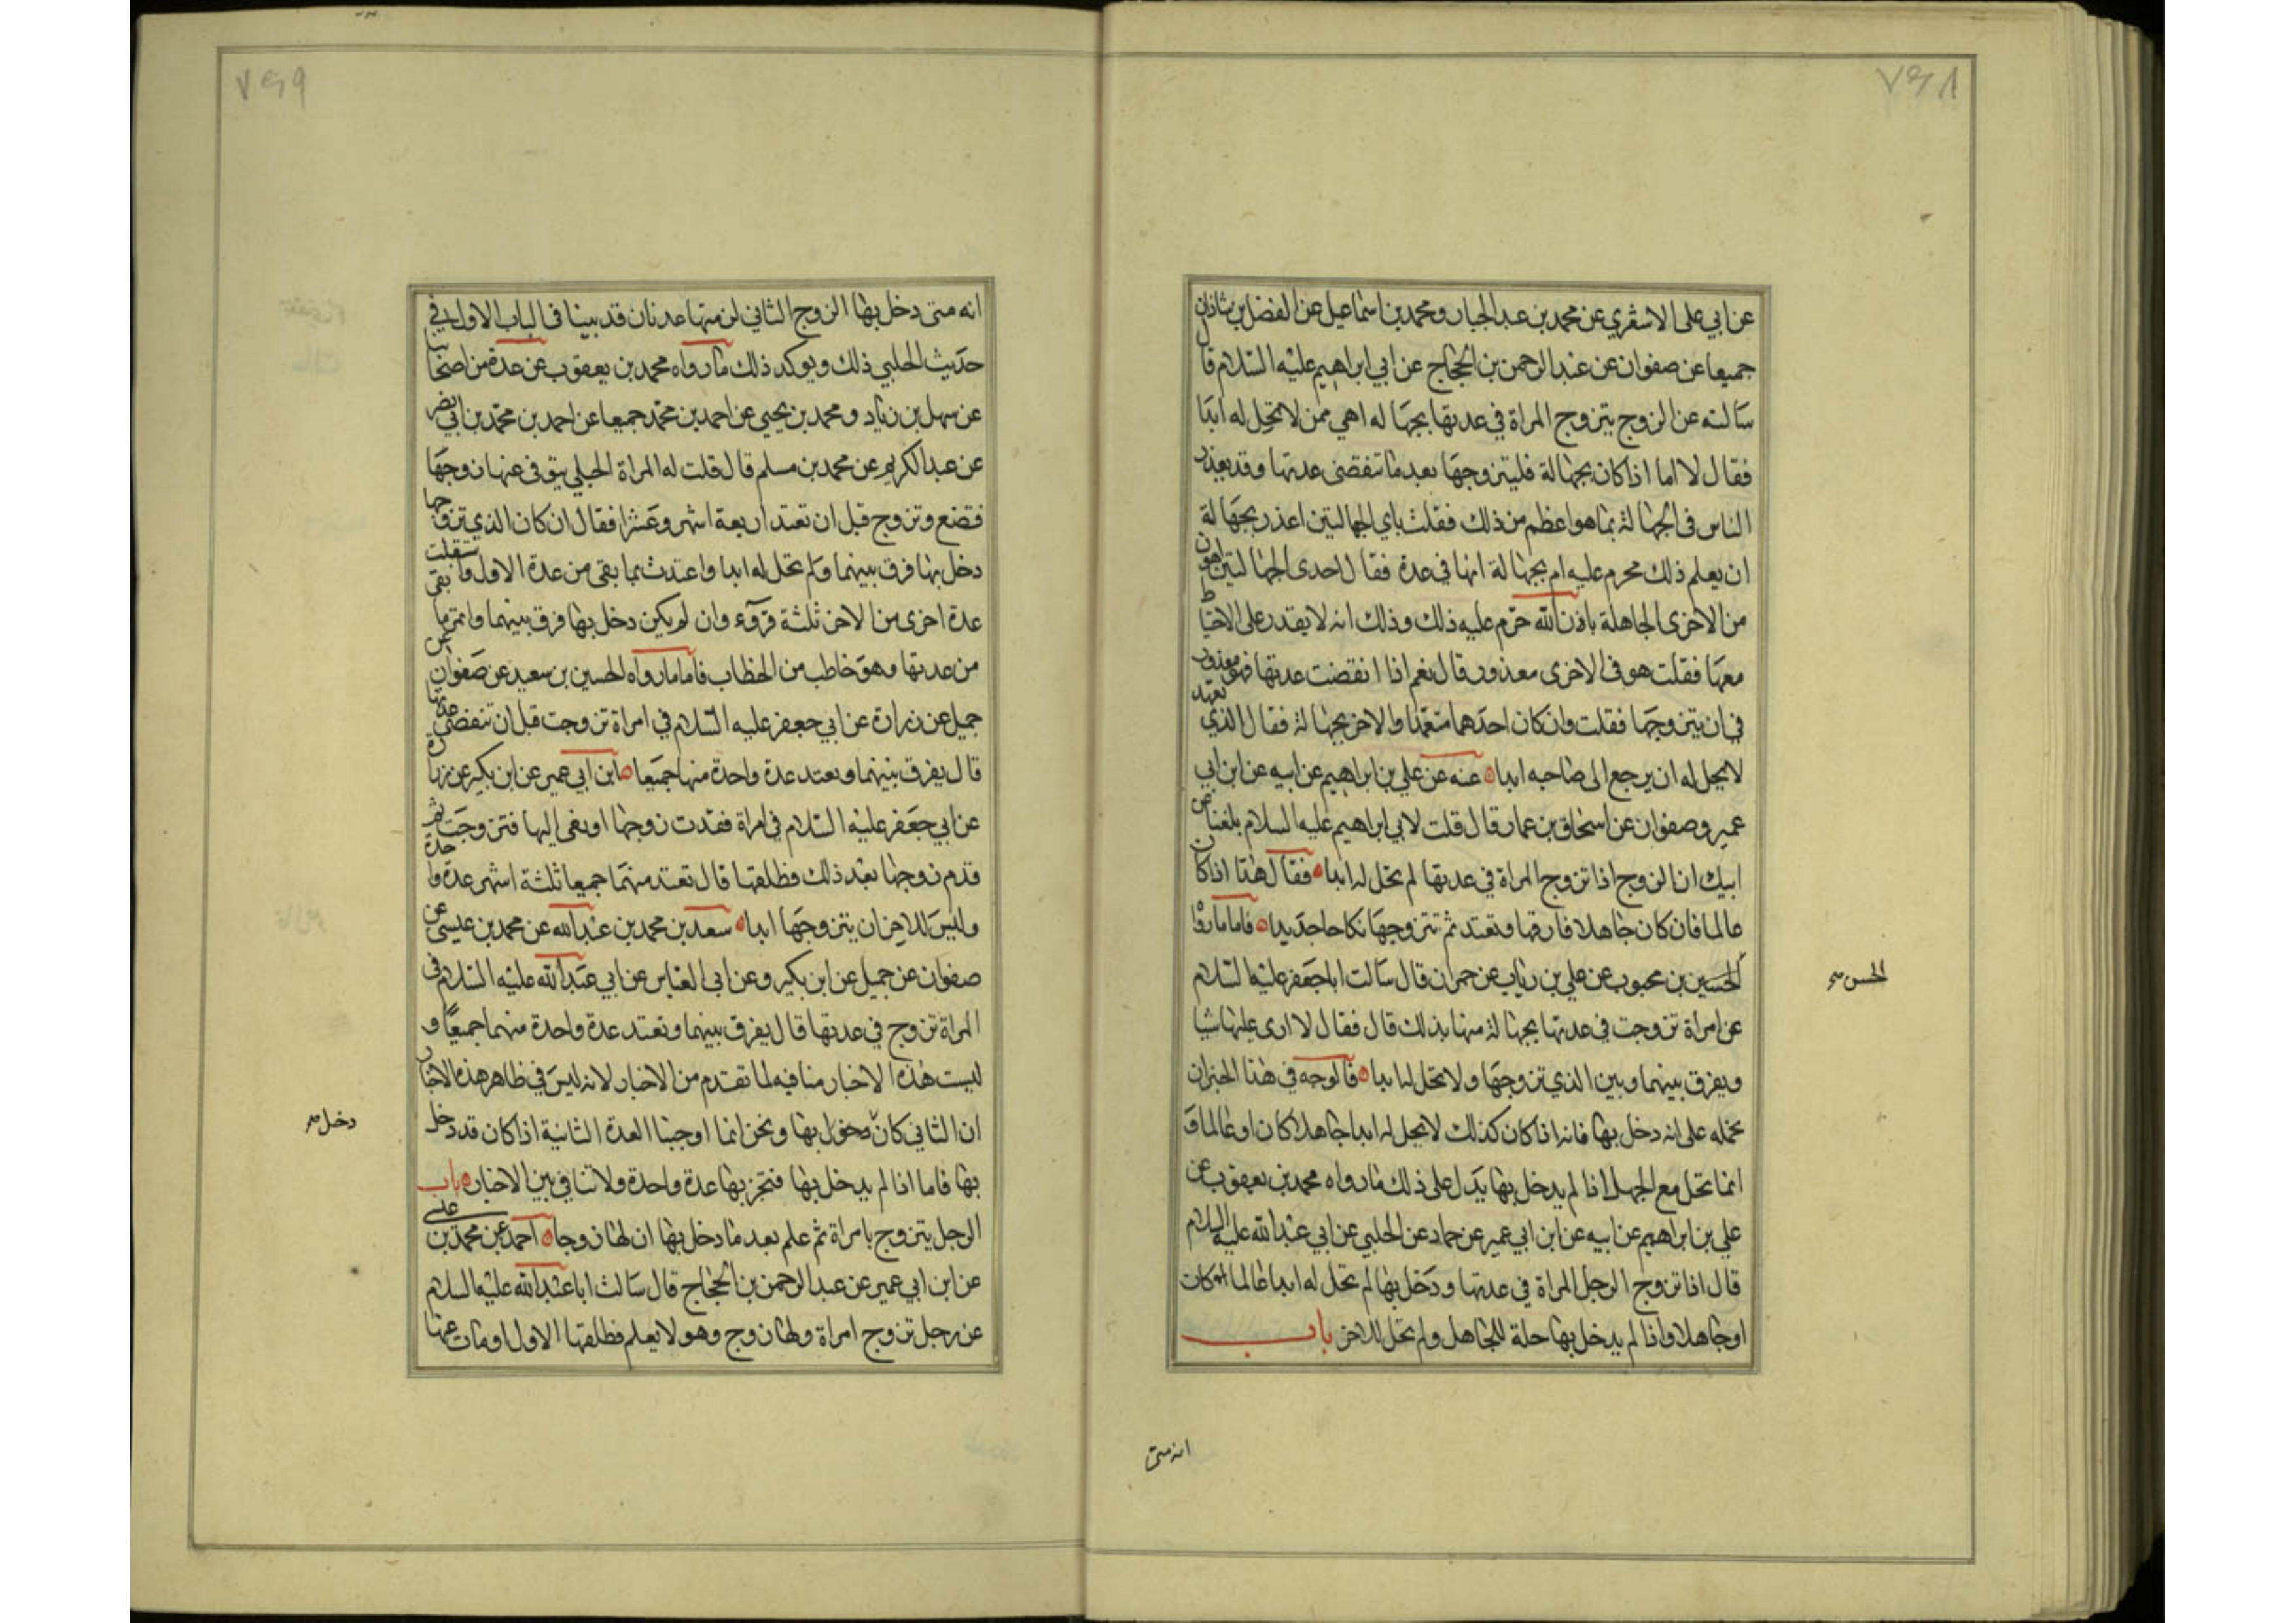 ٧٤٨
عن ابي علي الاشعري عن محمد بن عبد الجبار ومحمد بن اسماعيل عن الفضل بن شاذان
جميعا عن صفوان عن عبد الرحمن بن الحجاج عن ابي ابراهيم عليه السلام قال
سالته عن الزوج يتزوج المراة في عدتها بجهالة اهي ممن لا تحل له ابدا
فقال لا اما اذا كان بجهالة فليتزوجها بعد ما تنقضي عدتها وقد يعذر
الناس في الجهالة بما هو اعظم من ذلك فقلت باي الجهالتين اعذر بجهالة
ان يعلم ذلك محرم عليه ام بجهالة انها في عدة فقال احدى الجهالتين اهون
من الاخرى الجاهلة باذن الله حرم عليه ذلك وذلك انه لا يقدر على الاحتياط
معها فقلت هو في الاخرى معذور قال نعم اذا انقضت عدتها فهو معذور
في ان يتزوجها فقلت وان كان احدهما متعمدا والاخر بجهالة فقال الذي تعمد
لا يحل له ان يرجع الى صاحبه ابدا عنه عن علي بن ابراهيم عن ابيه عن ابن ابي
عمير وصفوان عن اسحاق بن عمار قال قلت لابي ابراهيم عليه السلام بلغنا عن
ابيك ان الزوج اذا تزوج المراة في عدتها لم تحل له ابدا فقال هذا اذا كان
عالما فان كان جاهلا فارقها وتعتد ثم تتزوجها نكاحا جديدا فاما ما رواه
الحسين بن محبوب عن علي بن رياب عن حمران قال سالت ابا جعفر عليه السلام
الحسن
عن امراة تزوجت في عدتها بجهالة منها بذلك قال فقال لا ارى عليها شيا
ويفرق بينهما وبين الذي تزوجها ولا تحل له ابدا فالوجه في هذا الخبر ان
نحمله على انه دخل بها فانه اذا كان كذلك لا يحل له ابدا جاهلا كان او عالما و
انما تحل مع الجهل اذا لم يدخل بها يدل على ذلك ما رواه محمد بن يعقوب عن
علي بن ابراهيم عن ابيه عن ابن ابي عمير عن حماد عن الحلبي عن ابي عبد الله عليه السلام
قال اذا تزوج الرجل المراة في عدتها ودخل بها لم تحل له ابدا عالما كان
او جاهلا واذا لم يدخل بها حلة للجاهل ولم تحل للاخر باب
انه متى
٧٤٩
انه متى دخل بها الزوج الثاني لزمتها عدتان قد بينا في الباب الاول في
حديث الحلبي ذلك ويوكد ذلك ما رواه محمد بن يعقوب عن عدة من اصحابنا
عن سهل بن زياد ومحمد بن يحيى عن احمد بن محمد جميعا عن احمد بن محمد بن ابي نصر
عن عبد الكريم عن محمد بن مسلم قال قلت له المراة الحبلى يتوفى عنها زوجها
فتضع وتزوج قبل ان تعتد اربعة اشهر وعشرا فقال ان كان الذي تزوجها
دخل بها فرق بينهما ولم تحل له ابدا واعتدت بما بقي من عدة الاول واستقبلت
عدة اخرى من الاخر ثلثة قروء وان لم يكن دخل بها فرق بينهما واتمت ما بقي
من عدتها وهو خاطب من الخطاب فاما ما رواه الحسين بن سعيد عن صفوان عن
جميل عن زرارة عن ابي جعفر عليه السلام في امراة تزوجت قبل ان تنقضي عدتها
قال يفرق بينهما وتعتد عدة واحدة منها جميعا ابن ابي عمير عن ابن بكير عن زرارة
عن ابي جعفر عليه السلام في امراة فقدت زوجها او نعى اليها فتزوجت ثم
قدم زوجها بعد ذلك فطلقها قال تعتد منهما جميعا ثلثة اشهر عدة واحدة
وليس للاخر ان يتزوجها ابدا سعد بن محمد بن عبد الله عن محمد بن عيسى عن
صفوان عن جميل عن ابن بكير وعن ابي العباس عن ابي عبد الله عليه السلام في
المراة تزوج في عدتها قال يفرق بينهما وتعتد عدة واحدة منهما جميعا و
ليست هذه الاخبار منافيه لما تقدم من الاخبار لانه ليس في ظاهر هذه الاخبار
ان الثاني كان دخل بها ونحن انما اوجبنا العدة الثانية اذا كان قد دخل
دخل
بها فاما اذا لم يدخل بها فتجزيها عدة واحدة ولا تنافي بين الاخبار باب
الرجل يتزوج بامراة ثم علم بعد ما دخل بها ان لها زوجا احمد عن محمد بن علي
عن ابن ابي عمير عن عبد الرحمن بن الحجاج قال سالت ابا عبد الله عليه السلام
عن رجل تزوج امراة ولها زوج وهو لا يعلم فطلقها الاول او مات عنها